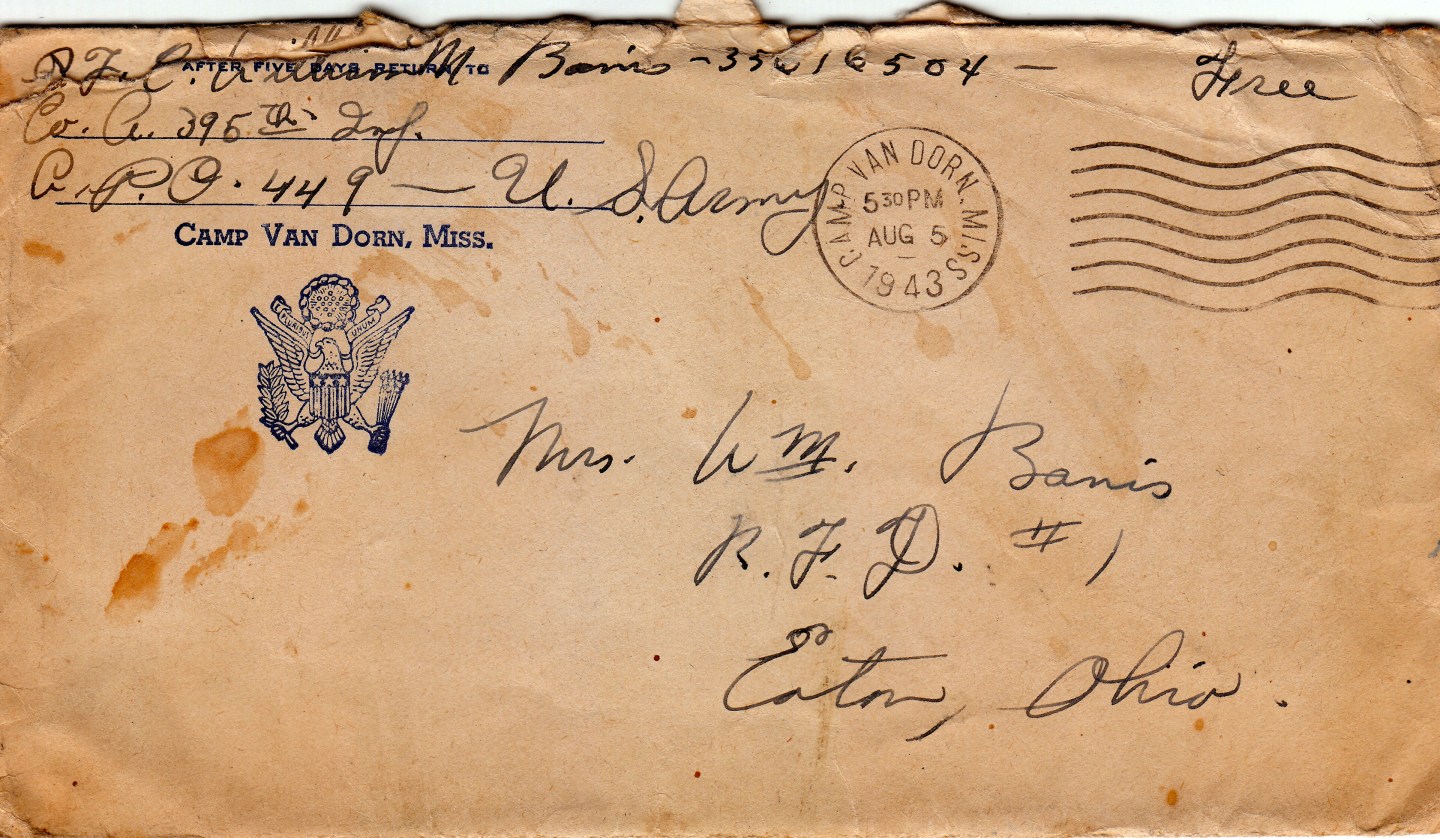 P.F.C. William M. Banis - 35616504 - Free
AFTER FIVE DAYS RETURN TO
Co. A. 395th Inf.
A.P.O. 449 — U.S. Army
CAMP VAN DORN, MISS.
CAMP VAN DORN, MISS
5 30 PM
AUG 5
1943
PLURIBUS UNUM
Mrs. Wm. Banis
R.F.D. #1
Eaton, Ohio.